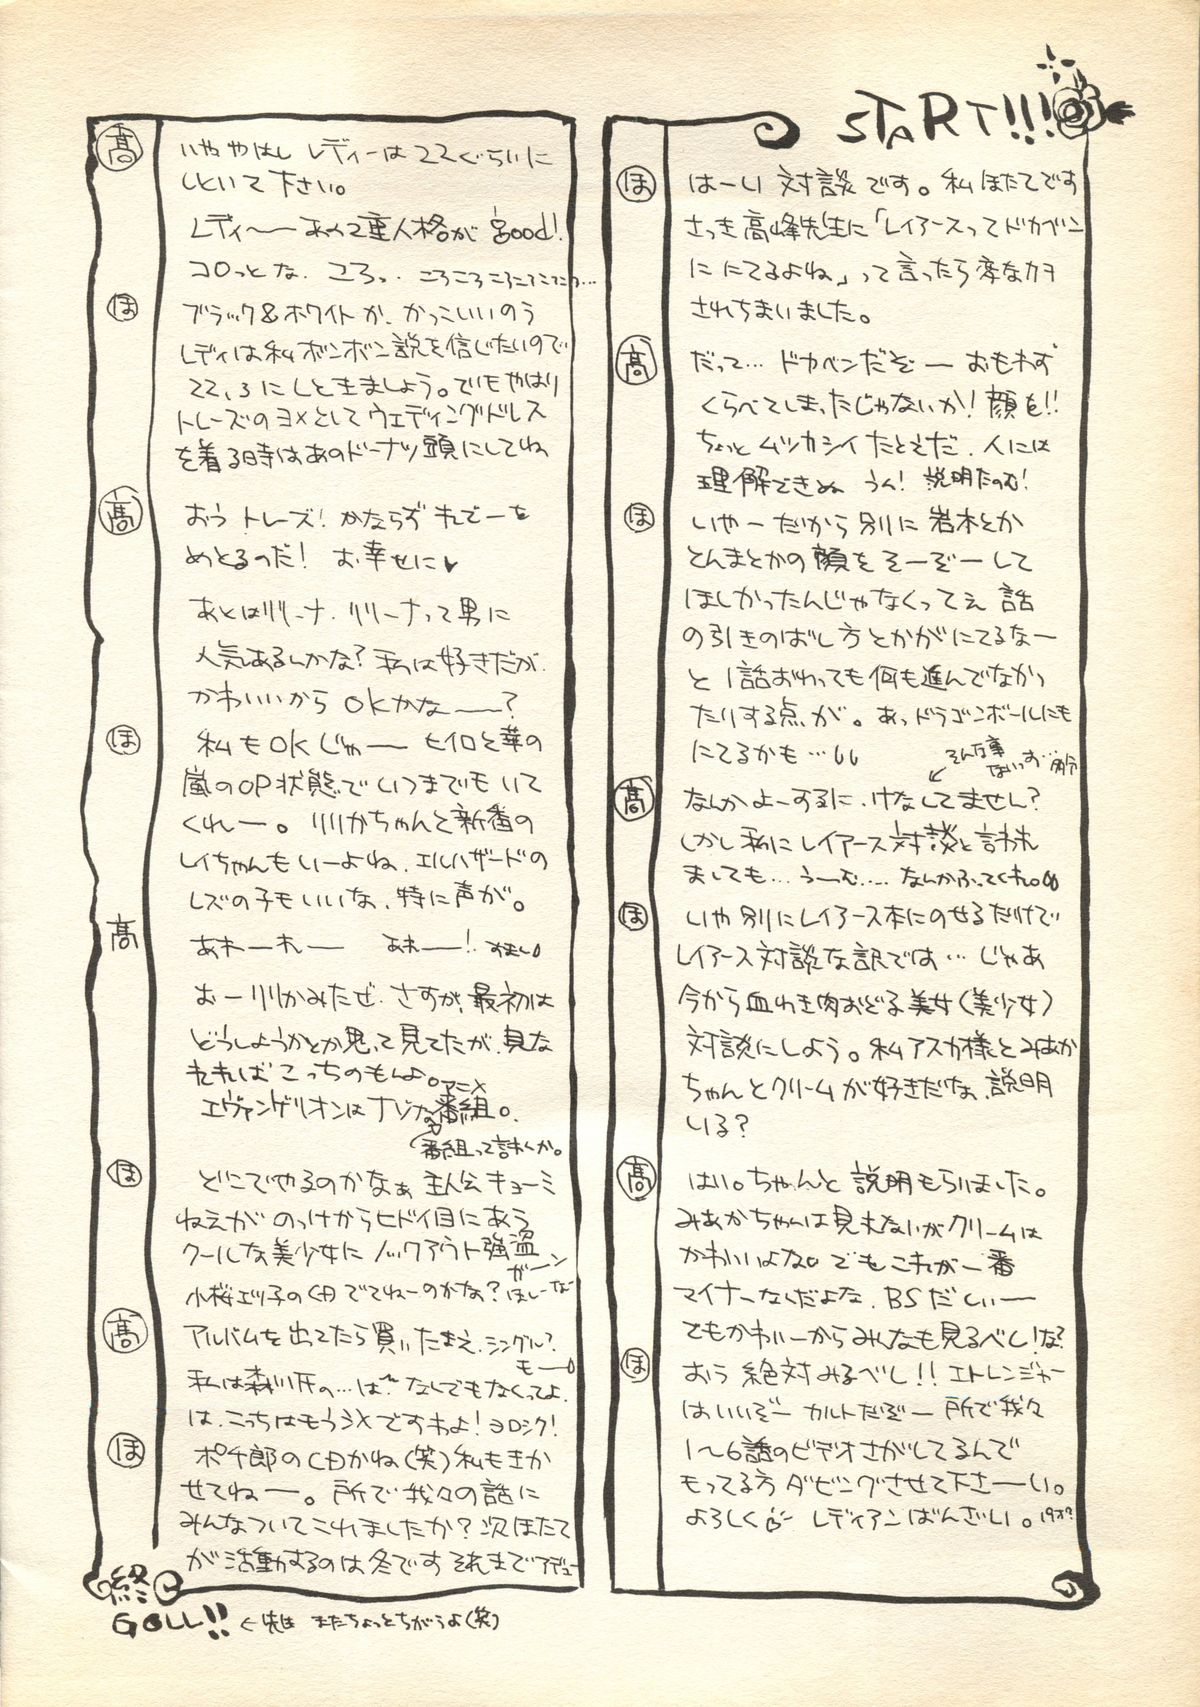 START!!!
ほ
はーい 対談です。私ほたてです
さっき高峰先生に「レイアースってドカベン
ににてるよね」って言ったら変なカオ
されちまいました。
高
だって… ドカベンだぞー おもわず
くらべてしまったじゃないか!顔を!!
ちょっとムツカシイたとえだ.人には
理解できぬ うん! 説明たのむ!
ほ
いやーだから別に岩木とか
とんまとかの顔をそーぞーして
ほしかったんじゃなくってぇ 話
の引きのばし方とかがにてるなー
と1話おわっても何も進んでなかっ
たりする点が。あっドラゴンボールにも
にてるかも…
そんな事
ないっす
高
なんかよーするに、けなしてません?
しかし私にレイアース対談と言われ
ましても…うーむ……なんかふってくれ。
ほ
いや別にレイアース本にのせるだけで
レイアース対談な訳では…じゃあ
今から血わき肉おどる美女(美少女)
対談にしよう。私アスカ様とみあか
ちゃんとクリームが好きだな、説明
いる?
高
はい。ちゃんと説明もらいました。
みあかちゃんは見えないがクリームは
かわいいよな。でもこれが一番
マイナーなんだよな、BSだしぃー
でもかわいーからみんなも見るべし!な?
ほ
おう絶対みるべし!!エトレンジャー
はいいぞー カルトだぞー 所で我々
1〜6話のビデオさがしてるんで
もってる方ダビングさせて下さーい。
よろしく レディアンばんざい。19才?
高
いややはし レディーは22ぐらいに
しといて下さい。
レディ〜〜あの2重人格がgood!
コロっとな.ころっ.ころころころころころ…
ほ
ブラック&ホワイトか.かっこいいのう
レディは私ボンボン説を信じたいので
22,3にしときましょう。でもやはり
トレーズのヨメとしてウェディングドレス
を着る時はあのドーナツ頭にしてね
高
おうトレーズ!かならずれでーを
めとるのだ! お幸せに♥
あとはリリーナ.リリーナって男に
人気あるんかな?私は好きだが.
かわいいからOKかな——?
ほ
私もOKじゃ—— ヒイロと華の
嵐のOP状態でいつまでもいて
くれー。リリカちゃんと新番の
レイちゃんもいーよね.エルハザードの
レズの子もいいな.特に声が。
高
あれーれー あれー!
おーリリカみたぜ.さすが、最初は
どうしようかとか思って見てたが.見な
れればこっちのもんよ。
エヴァンゲリオンはナゾな番組。
アニメ
番組って言わんか。
ほ
どこでやるのかなぁ 主人公キューミ
ねえがのっけからヒドイ目にあう
クールな美少女にノックアウト強盗
ガーン
小桜エツ子のCDでてねーのかな?ほしーな
高
アルバムを出てたら買いたまえ.シングル?
もー
私は森川氏の…は".なんでもなくってよ.
は.こっちはもうダメですわよ!ヨロシク!
ほ
ポチ郎のCDかね(笑)私もきか
せてねー。所で我々の話に
みんなついてこれましたか?次ほたて
が活動するのは冬です それまでアデュー
終
GOLL!!